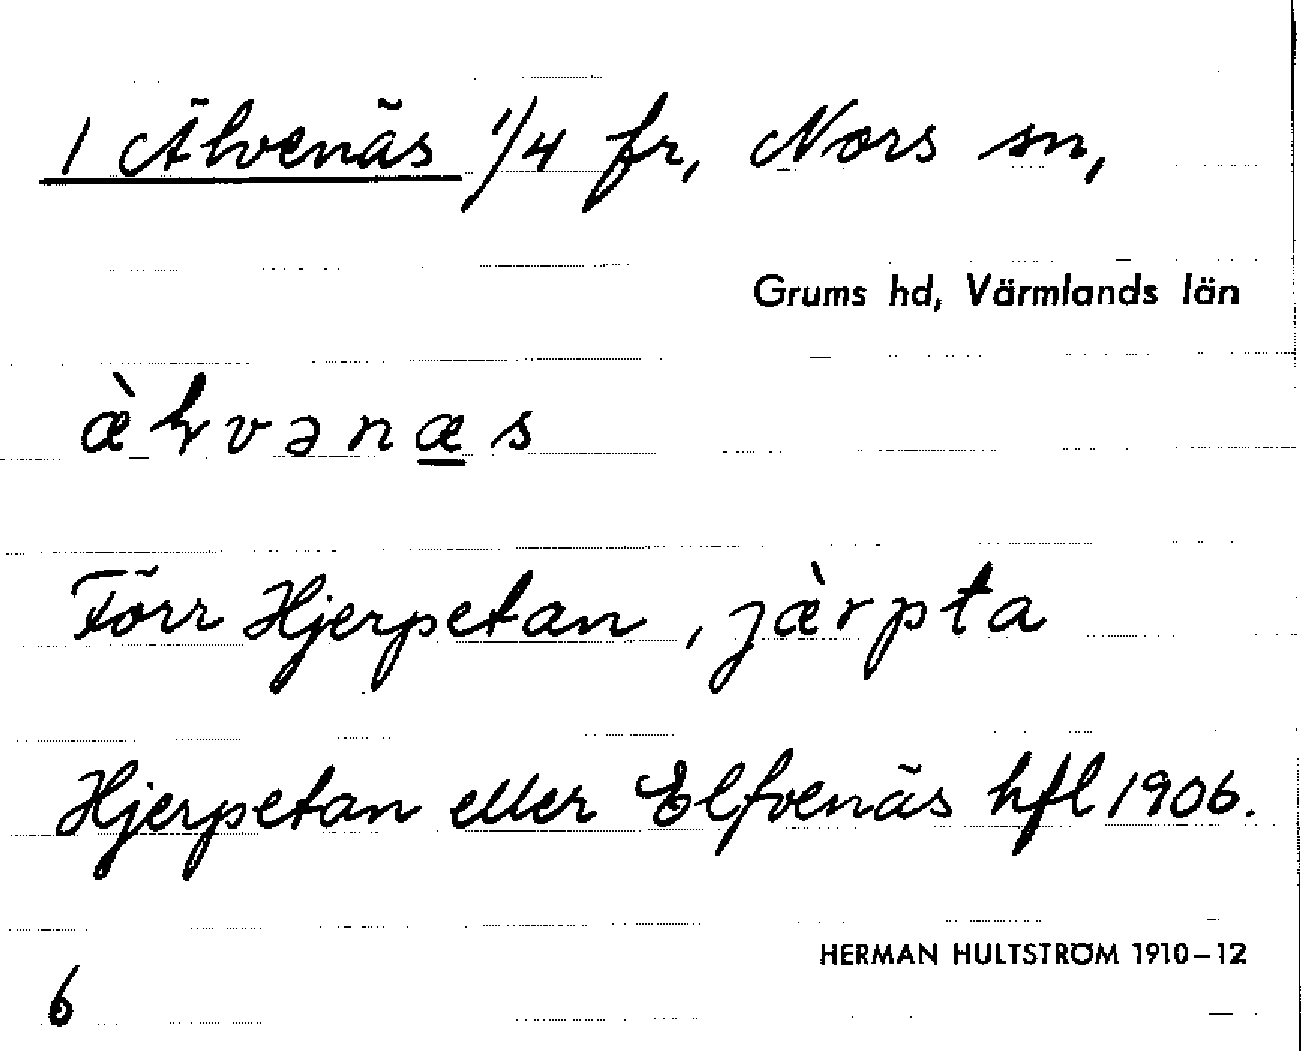 1 Älvenäs 1/4 fr, Nors sn,
Grums hd, Värmlands län
æ̀ɽvənæ̲s
Förr Hjerpetan, jæ̀rpta
Hjerpetan eller Elfvenäs hfl 1906.
HERMAN HULTSTRÖM 1910–12
6